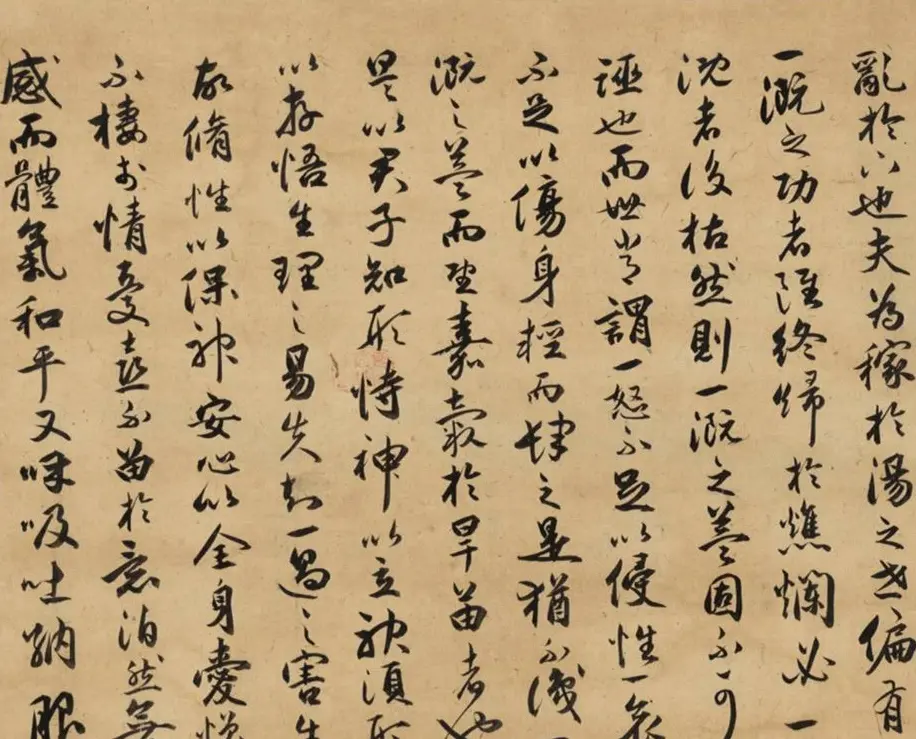 亂於下也夫為稼於湯之世偏有
一溉之功者雖終歸於燋爛必一
沈者後枯然則一溉之益固不可
誣也而世常謂一怒不足以侵性一哀
不足以傷身輕而肆之是猶不識一
溉之益而望嘉穀於旱苗者也
是以君子知形恃神以立神須形
以存悟生理之易失知一過之害生
故脩性以保神安心以全身愛憎
不棲於情憂喜不留於意泊然無
感而體氣和平又呼吸吐納服